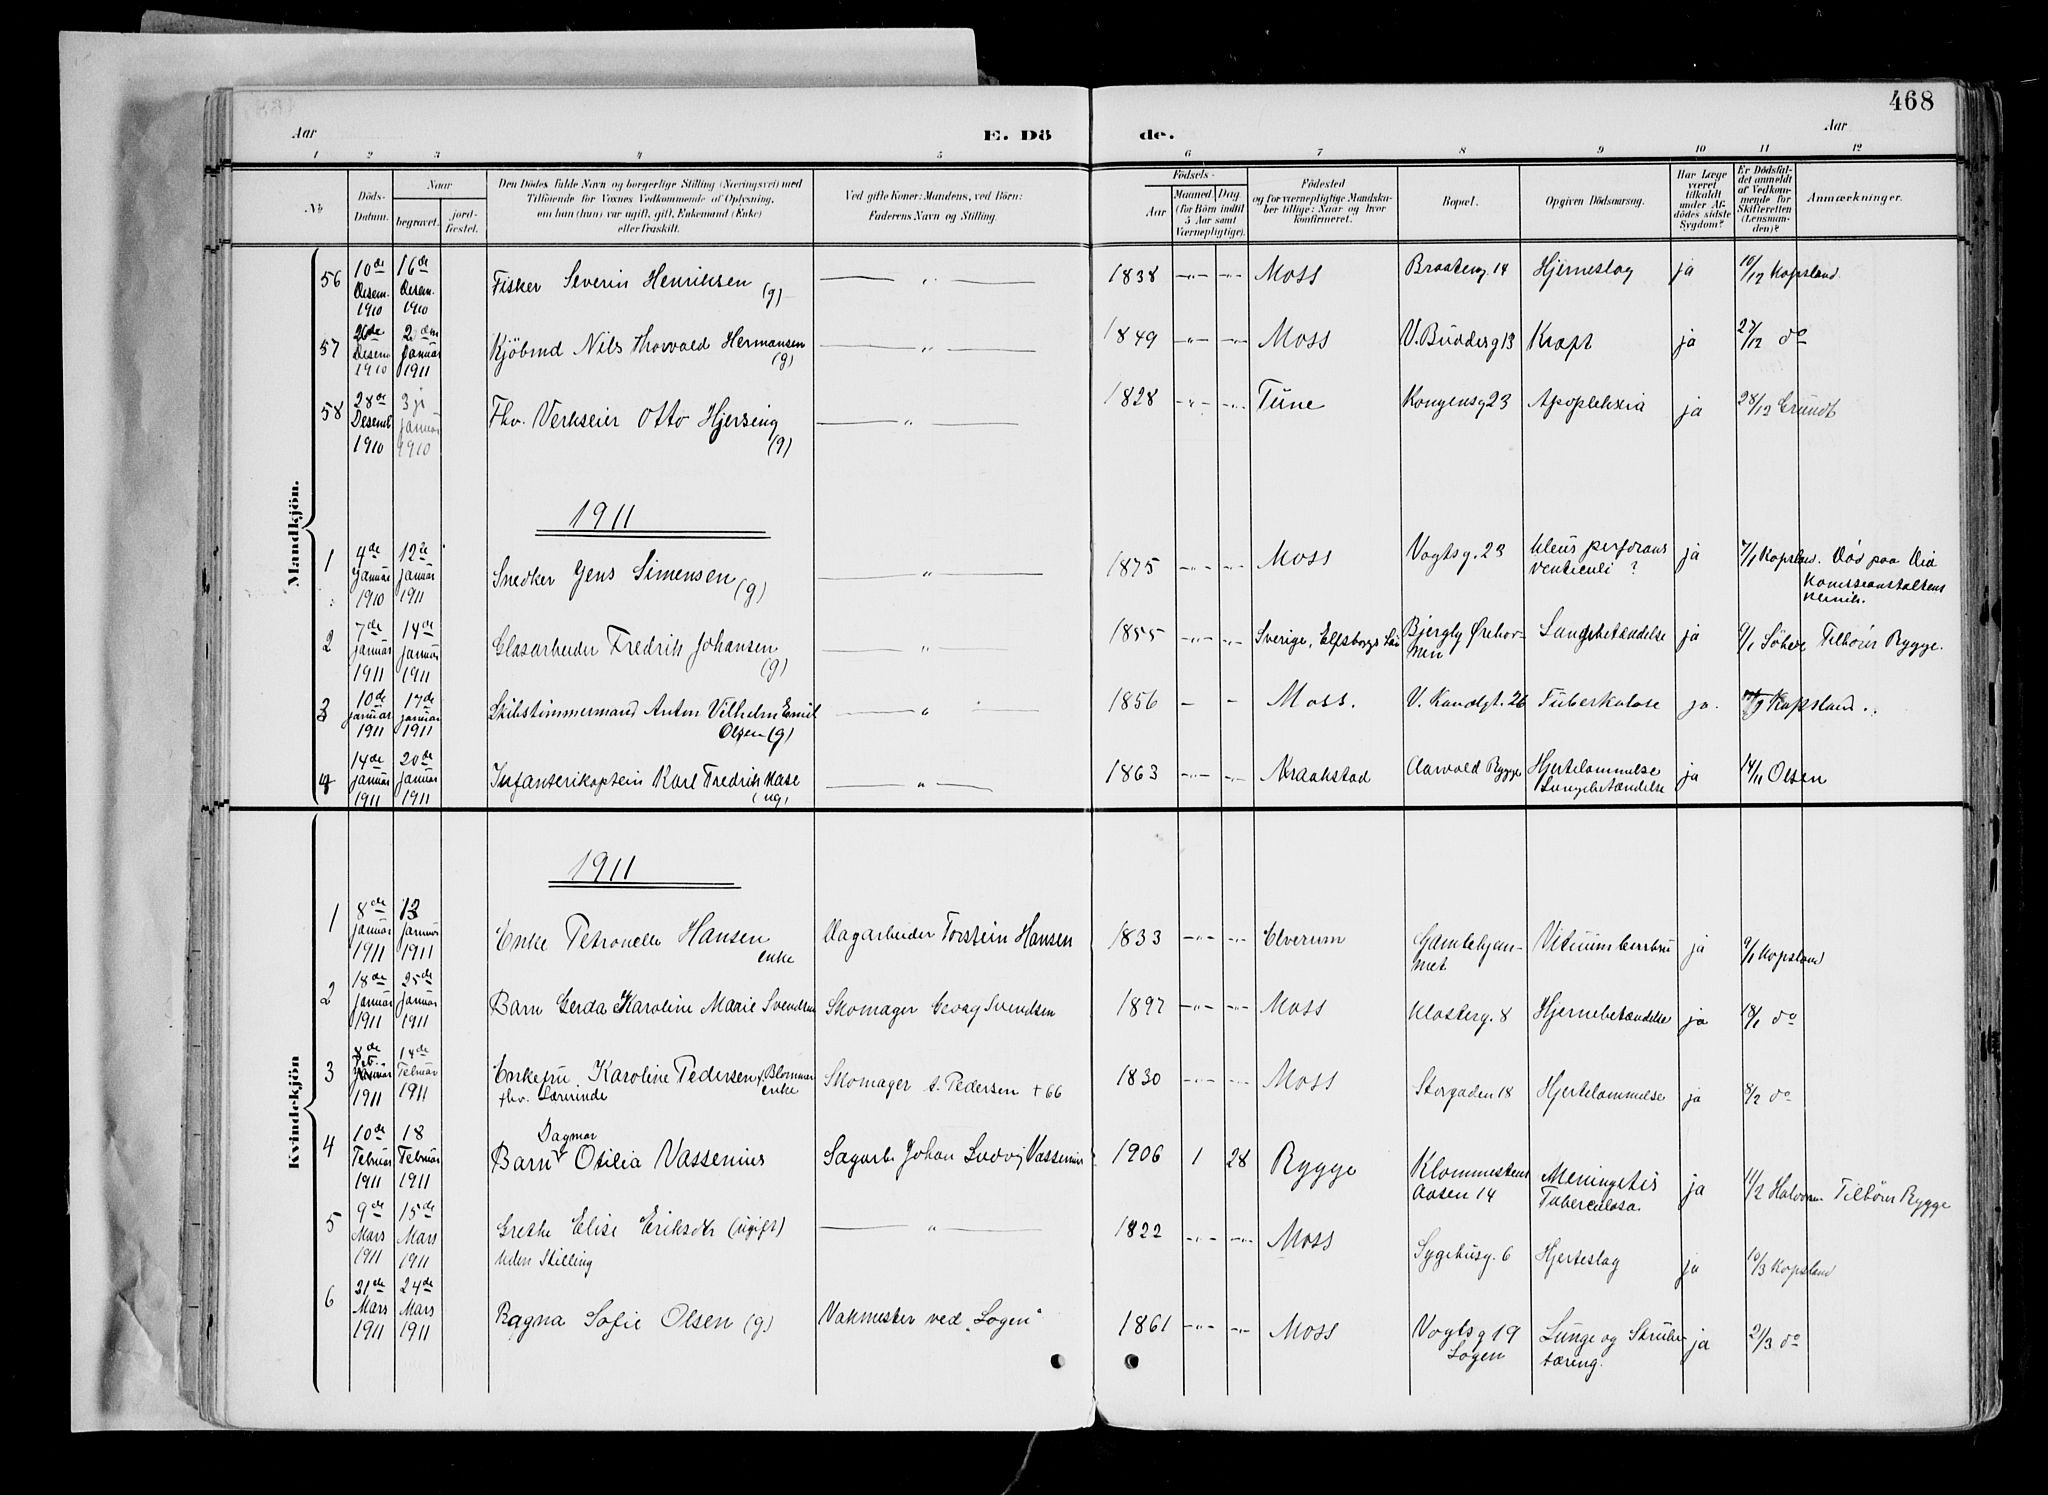 468
Aar E. Dö de. Aar
1 2 3 4 5 6 7 8 9 10 11 12
No Döds-Datum. Naar begravet. jord-fæstet. Den Dödes fulde Navn og borgerlige Stilling (Næringsvei) med Tilföiende for Voxnes Vedkommende af Oplysning, om han (hun) var ugift, gift, Enkemand (Enke) eller fraskilt. Ved gifte Koner: Mandens, ved Börn: Faderens Navn og Stilling. Födsels- Aar Maaned Dag (for Börn indtil 5 Aar samt Værnepligtige). Födested og for værnepligtige Mandskaber tillige: Naar og hvor konfirmeret. Bopæl. Opgiven Dödsaarsag. Har Læge været tilkaldt under Afdödes sidste Sygdom? Er Dödsfaldet anmeldt af Vedkommende for Skifteretten (Lensmanden)? Anmærkninger.
Mandkjön.
56 10de Desem. 1910 16de Desem. 1910 Fisker Severin Henriksen (g) — " — 1838 -"- -"- Moss Braateng. 14 Hjerneslag ja 10/12 Kopsland.
57 26de Desem 1910 2den Januar 1911 Kjöbmd Nils Thorvald Hermansen (g) — " — 1849 -"- -"- Moss V. Budderg 13 Kræft ja 27/12 do
58 28de Desemb 1910 3je januar 1910 Fhv. Verkseier Otto Hjersing (g) — " — 1828 -"- -"- Tune Kongensg 23 Apoplexia ja 28/12 Grundt
1911
1 4de Januar 1910 12te januar 1911 Snedker Jens Simensen (g) — " — 1875 -"- -"- Moss Vogtsg. 23 Ulcus perforans ventriculi ? ja 7/1 Kopsland. Död paa Dia
Klinik.
2 7de januar 1911 14de januar 1911 Glasarbeider Fredrik Johansen (g) — " — 1855 -"- -"- Sverige, Elfsborgs Län Bjergly Ørehavnen Lungebetændelse ja 9/1 Tilhörer Rygge.
3 10de januar 1911 17de januar 1911 Skibstömmermand Anton Vilhelm Emil Olsen (g) — " — 1856 - - Moss. V. Kanalgt. 26 Tuberkulose ja. Kopsland.
4 14de januar 1911 20de januar 1911 Infanterikaptein Karl Fredrik Hase (ug) — " — 1863 -"- -"- Kraakstad Aarvold Rygge Hjertelammelse Lungebetændelse ja 14/1 Olsen
Kvindekjön
1911
1 8de januar 1911 13 januar 1911 Enke Petronelle Hansen enke Dagarbeider Torstein Hansen 1833 -"- -"- Elverum Gamlehjemmet Vitium cordis ja 9/1 Kopsland
2 18de januar 1911 25de januar 1911 Barn Gerda Karoline Marie Svendsen Skomager Georg Svendsen 1897 -"- -"- Moss Klosterg. 8 Hjernebetændelse ja 18/1 do
3 8de Feb. 1911 14de Februar 1911 Enkefru Karoline Pedersen f. Blommer enke fhv. Lærerinde Skomager S. Pedersen + 66 1830 -"- -"- Moss Storgaden 18 Hjertelammelse ja 8/2 do
4 10de Februar 1911 18 Februar 1911 Barn Dagmar Otilia Vassenius Sagarb. Johan Ludvig Vassenius 1906 1 28 Rygge Klommestens Aasen 14 Meningitis Tuberculosa. ja 11/2 Halvorsen Tilhörer Rygge
5 9de Mars 1911 15de Mars 1911 Grethe Elise Eriksdtr (ugift) Uden Stilling — " — 1822 -"- -"- Moss Sygehusg. 6 Hjerteslag ja 10/3 Kopsland
6 21de Mars 1911 24de Mars 1911 Ragna Sofie Olsen (g) Vaktmester ved „Logen" 1861 -"- -"- Moss Vogtsg 19 Logen Lunge og Strubetæring. ja 21/3 do